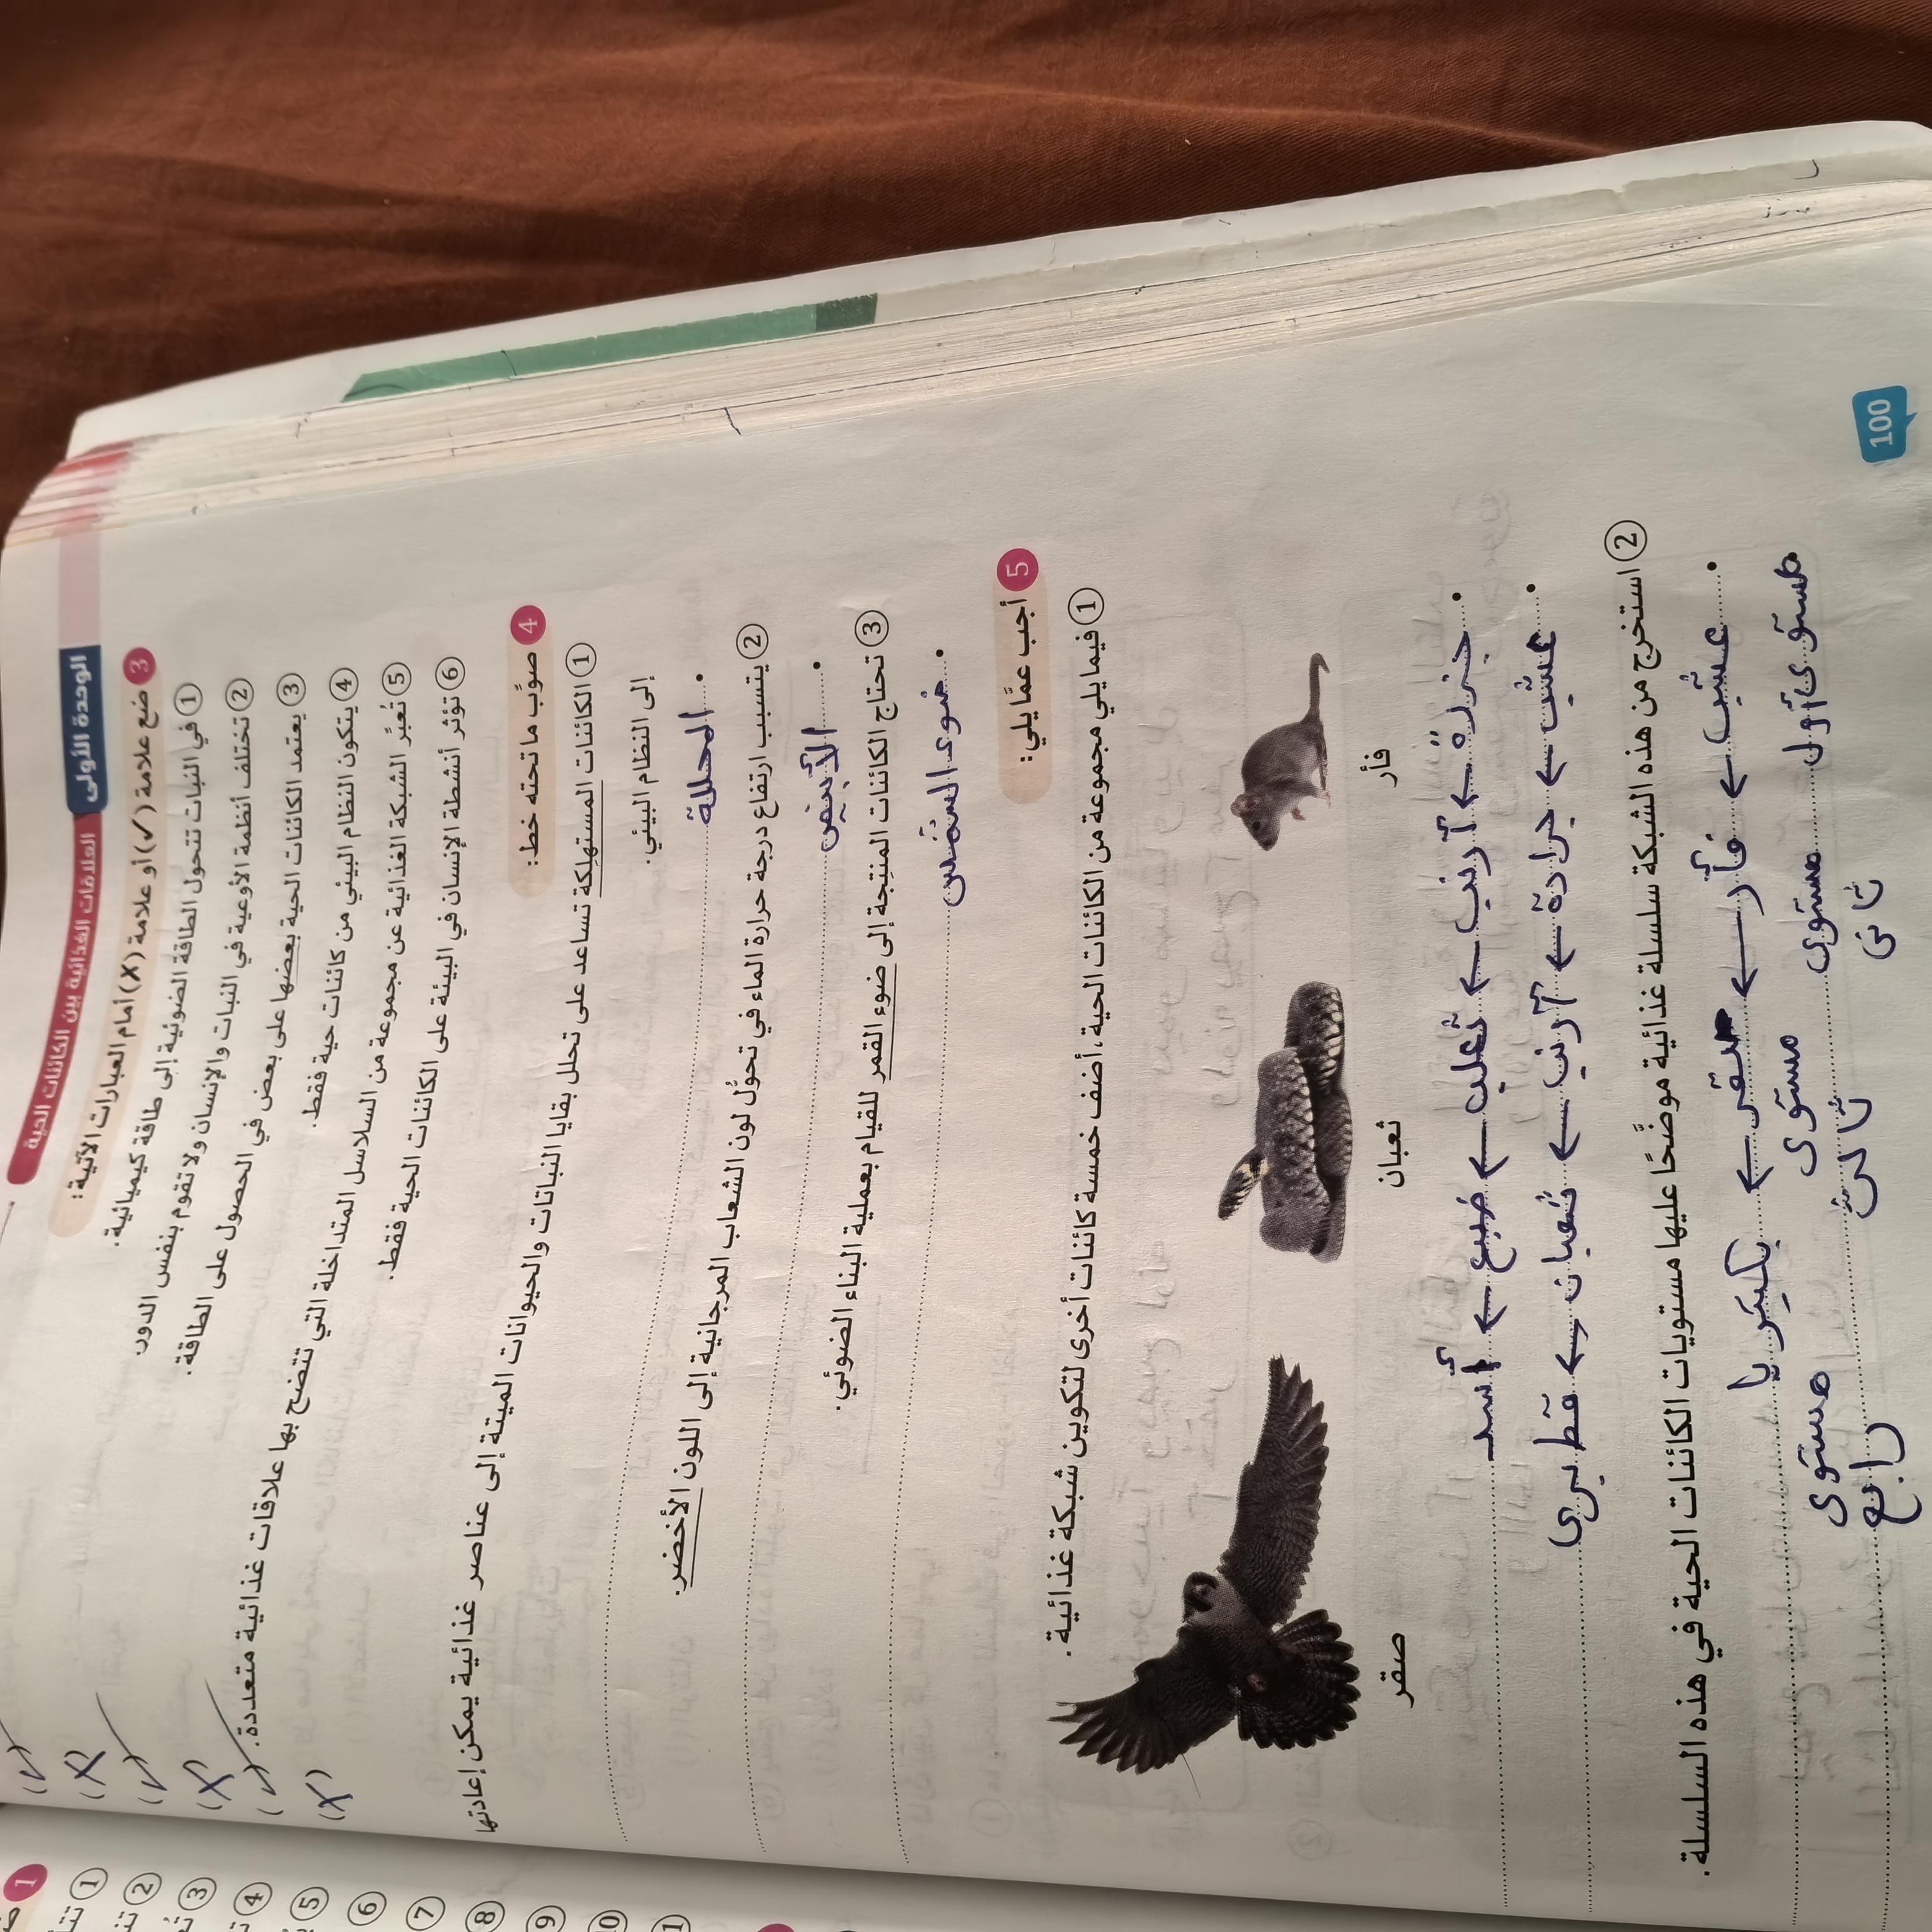 العلاقات الغذائية بين الكائنات الحية الوحدة الأولى
3 ضع علامة (✓) أو علامة (X) أمام العبارات الآتية:
1 في النبات تتحول الطاقة الضوئية إلى طاقة كيميائية. (✓)
2 تختلف أنظمة الأوعية في النبات والإنسان ولا تقوم بنفس الدور. (X)
3 يعتمد الكائنات الحية بعضها على بعض في الحصول على الطاقة. (✓)
4 يتكون النظام البيئي من كائنات حية فقط. (X)
5 تُعبِّر الشبكة الغذائية عن مجموعة من السلاسل المتداخلة التي تتضح بها علاقات غذائية متعددة. (✓)
6 تؤثر أنشطة الإنسان في البيئة على الكائنات الحية فقط. (X)
4 صوِّب ما تحته خط:
1 الكائنات المستهلِكة تساعد على تحلل بقايا النباتات والحيوانات الميتة إلى عناصر غذائية يمكن إعادتها
إلى النظام البيئي.
• المحللة
2 يتسبب ارتفاع درجة حرارة الماء في تحوُّل لون الشعاب المرجانية إلى اللون الأخضر.
• الأبيض
3 تحتاج الكائنات المنتِجة إلى ضوء القمر للقيام بعملية البناء الضوئي.
• ضوء الشمس
5 أجب عمَّا يلي:
1 فيما يلي مجموعة من الكائنات الحية، أضف خمسة كائنات أخرى لتكوين شبكة غذائية.
فأر ثعبان صقر
• جزرة ← أرنب ← ثعلب ← ضبع ← أسد
• عشب ← جرادة ← أرنب ← ثعبان ← قط بري
2 استخرج من هذه الشبكة سلسلة غذائية موضِّحًا عليها مستويات الكائنات الحية في هذه السلسلة.
• عشب ← فأر ← صقر ← بكتيريا
مستوى أول مستوى مستوى مستوى
ثاني ثالث رابع
100
1
1
2
3
4
5
6
7
8
9
10